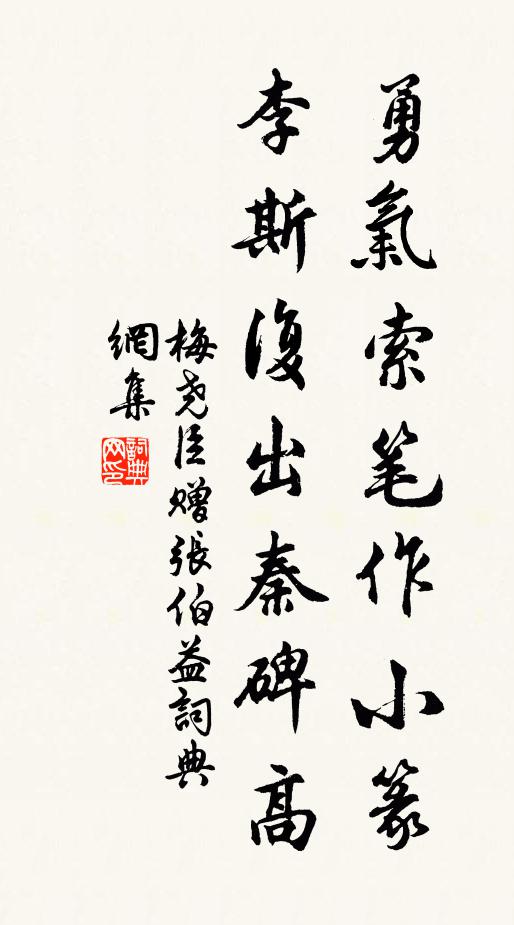 勇氣索笔作小篆
李斯復出秦碑高
梅尧臣赠張伯益詞典
網集
詞典网印